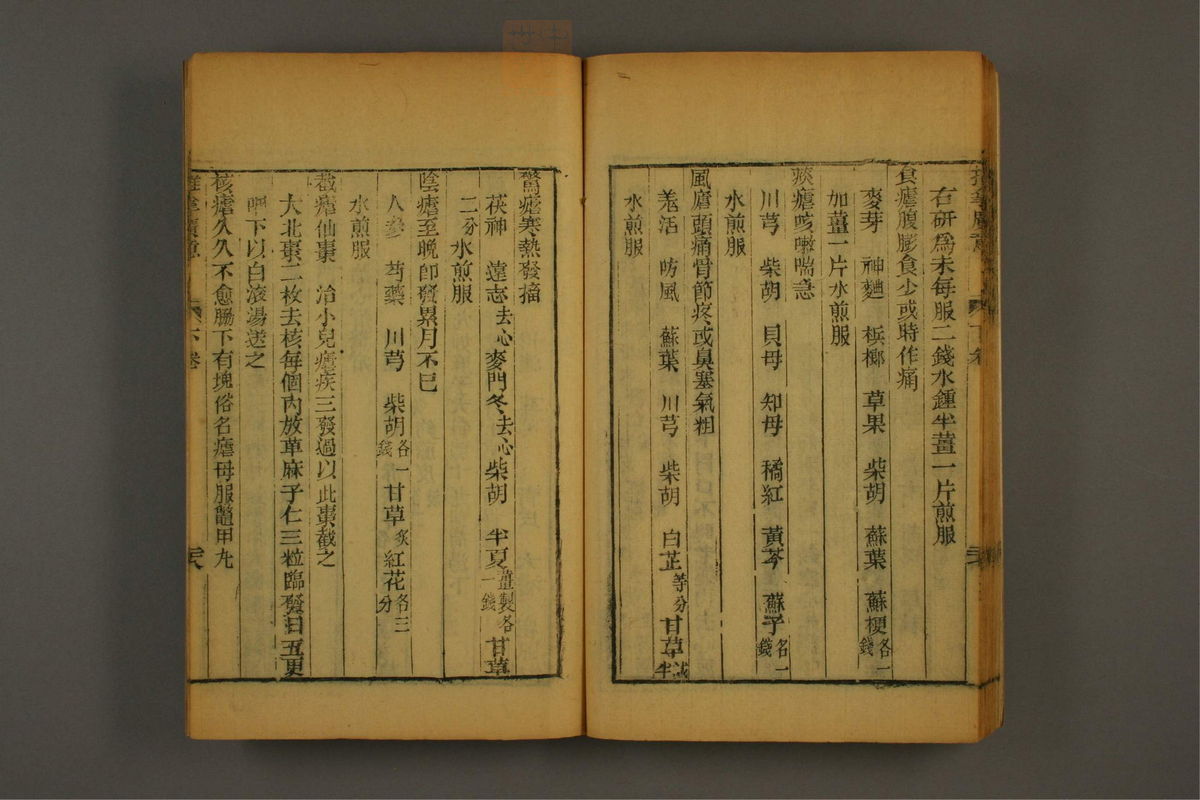 右研爲末每服二錢水鍾半薑一片煎服
食瘧腹膨食少或時作痛
麥芽 神麯 梹榔 草果 柴胡 蘇葉 蘇梗各一錢
加薑一片水煎服
痰瘧咳嗽喘急
川芎 柴胡 貝母 知母 橘紅 黃芩 蘇子各一錢
水煎服
風瘧頭痛骨節疼或鼻塞氣粗
羗活 防風 蘇葉 川芎 柴胡 白芷等分甘草減半
水煎服
驚瘧寒熱發搐
茯神 遠志去心麥門冬去心柴胡 半夏薑製各一錢甘草
二分水煎服
陰瘧至晚即發累月不已
人參 芍藥 川芎 柴胡各一錢甘草炙紅花各三分
水煎服
截瘧仙棗 治小兒瘧疾三發過以此棗截之
大北棗二枚去核每個內放草麻子仁三粒臨發日五更
嚥下以白滚湯送之
痎瘧久久不愈腸下有塊俗名瘧母服鼈甲丸
推拿廣意 下卷 三六